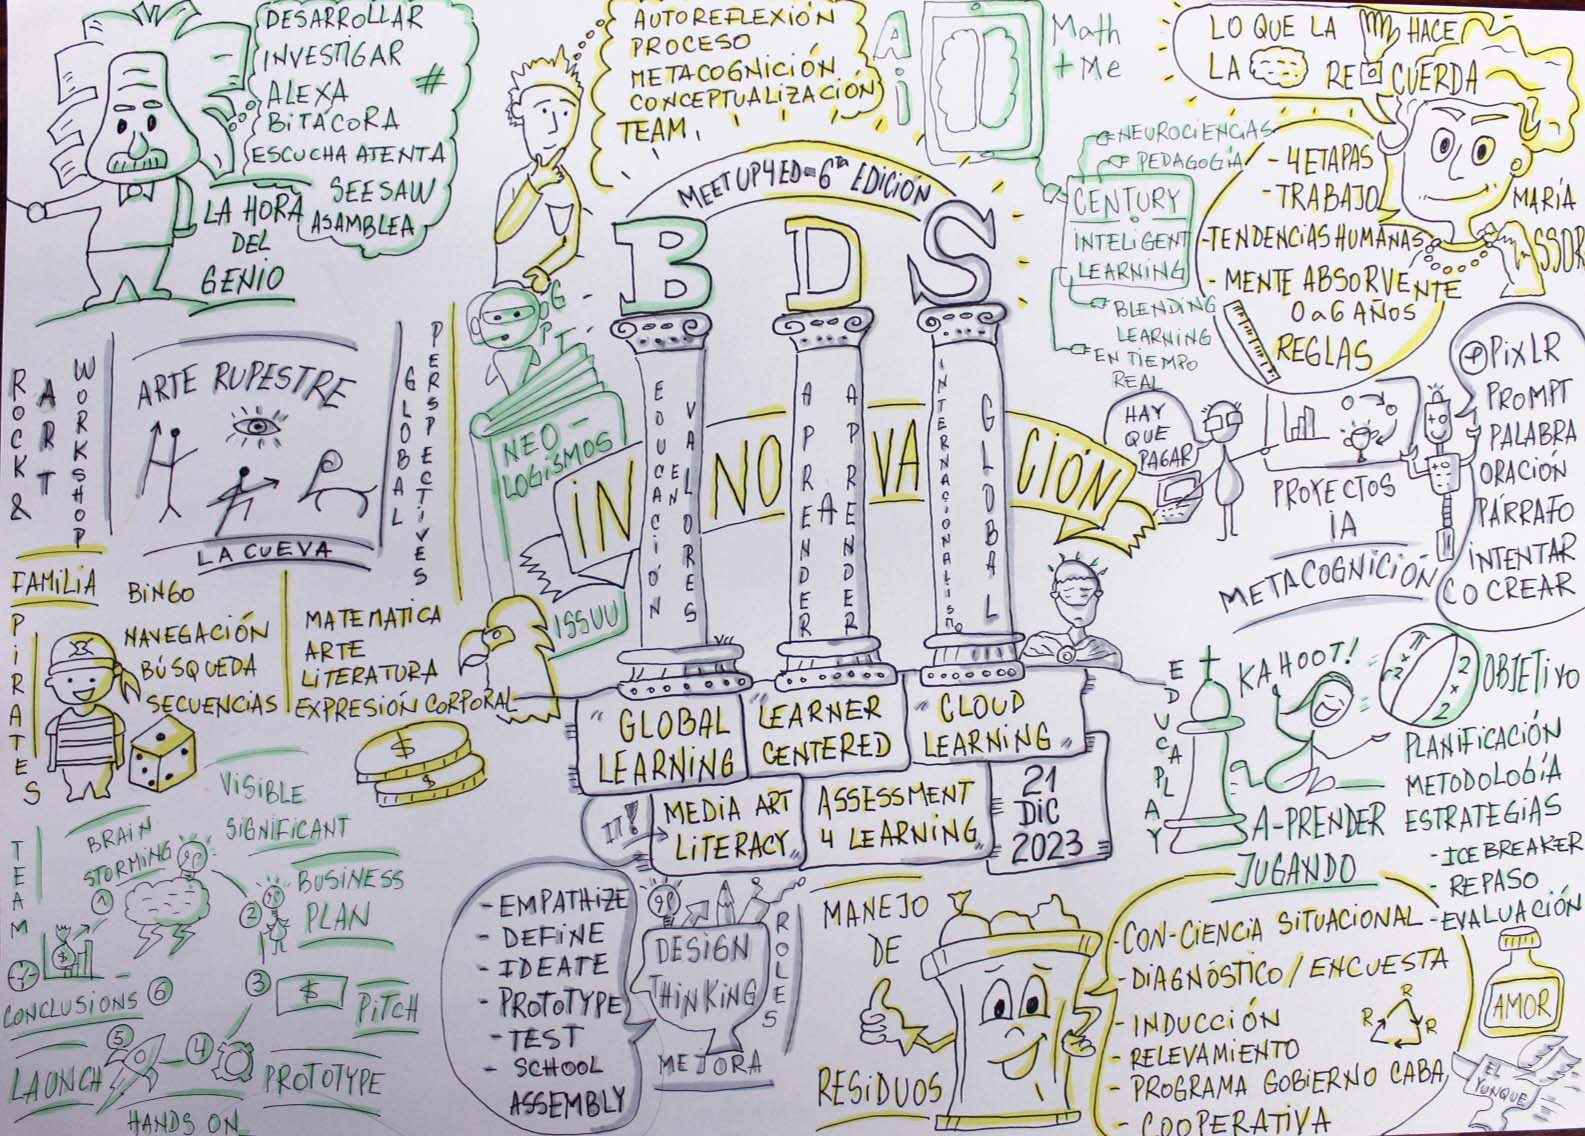 DESARROLLAR
INVESTIGAR
ALEXA #
BITÁCORA
ESCUCHA ATENTA
SEESAW
ASAMBLEA
LA HORA
DEL
GENIO
AUTOREFLEXIÓN
PROCESO
METACOGNICIÓN
CONCEPTUALIZACIÓN
TEAM
AI
Math
+ Me
NEUROCIENCIAS
PEDAGOGÍA
CENTURY
INTELIGENT
LEARNING
BLENDING
LEARNING
EN TIEMPO
REAL
LO QUE LA HACE
LA RE CUERDA
- 4 ETAPAS
- TRABAJO
- TENDENCIAS HUMANAS
- MENTE ABSORVENTE
0 a 6 AÑOS
REGLAS
MARÍA
SSOR
MEETUP4ED - 6ta EDICIÓN
BDS
GPT
NEO-
LOGISMOS
ISSUU
INNOVACIÓN
EDUCACIÓN
EN
VALORES
APRENDER
A
APRENDER
INTERNACIONALISMO
GLOBAL
ROCK &
ART
WORKSHOP
ARTE RUPESTRE
LA CUEVA
GLOBAL
PERSPECTIVES
HAY
QUE
PAGAR
PROYECTOS
IA
METACOGNICIÓN
PIXLR
PROMPT
PALABRA
ORACIÓN
PÁRRAFO
INTENTAR
CO CREAR
FAMILIA
PIRATES
BINGO
NAVEGACIÓN
BÚSQUEDA
SECUENCIAS
MATEMATICA
ARTE
LITERATURA
EXPRESIÓN CORPORAL
$
$
"GLOBAL
LEARNING
LEARNER
CENTERED
CLOUD
LEARNING"
IT!
MEDIA ART
LITERACY"
ASSESSMENT
4 LEARNING
21
DIC
2023
EDUCAPLAY
KAHOOT!
A-PRENDER
JUGANDO
OBJETIVO
PLANIFICACIÓN
METODOLOGÍA
ESTRATEGIAS
- ICEBREAKER
- REPASO
- EVALUACIÓN
TEAM
VISIBLE
SIGNIFICANT
BRAIN
STORMING
1
2
BUSINESS
PLAN
3
$
PITCH
4
PROTOTYPE
5
LAUNCH
6
CONCLUSIONS
$
HANDS ON
- EMPATHIZE
- DEFINE
- IDEATE
- PROTOTYPE
- TEST
- SCHOOL
ASSEMBLY
DESIGN
THINKING
MEJORA
ROLES
MANEJO
DE
RESIDUOS
- CON-CIENCIA SITUACIONAL
- DIAGNÓSTICO / ENCUESTA
- INDUCCIÓN
- RELEVAMIENTO
- PROGRAMA GOBIERNO CABA
- COOPERATIVA
R
R R
AMOR
EL
YUNQUE